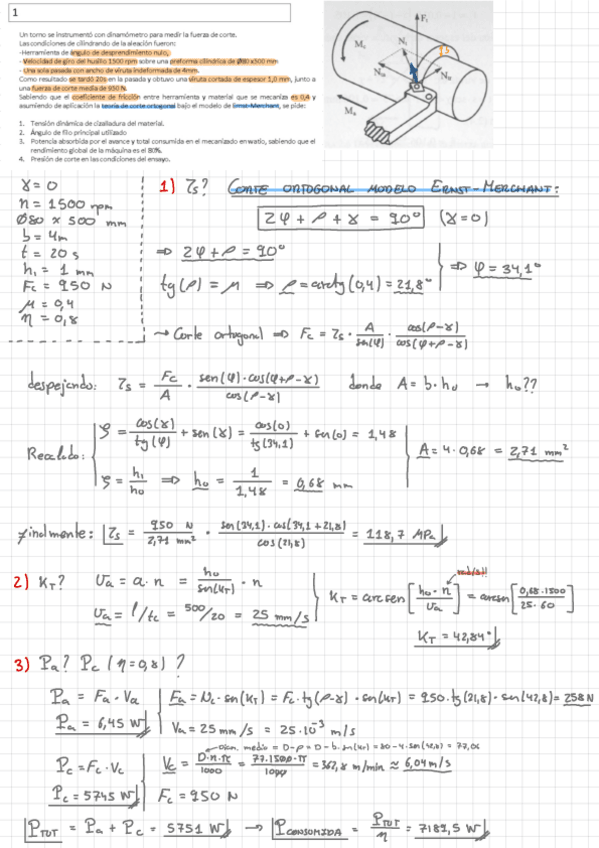 1
Un torno se instrumentó con dinamómetro para medir la fuerza de corte.
Las condiciones de cilindrando de la aleación fueron:
-Herramienta de ángulo de desprendimiento nulo,
- Velocidad de giro del husillo 1500 rpm sobre una preforma cilíndrica de Ø80 x500 mm
- Una sola pasada con ancho de viruta indeformada de 4mm.
Como resultado se tardó 20s en la pasada y obtuvo una viruta cortada de espesor 1,0 mm, junto a
una fuerza de corte media de 950 N.
Sabiendo que el coeficiente de fricción entre herramienta y material que se mecaniza es 0,4 y
asumiendo de aplicación la teoría de corte ortogonal bajo el modelo de Ernst-Merchant, se pide:
1. Tensión dinámica de cizalladura del material.
2. Ángulo de filo principal utilizado
3. Potencia absorbida por el avance y total consumida en el mecanizado en watio, sabiendo que el
rendimiento global de la máquina es el 80%.
4. Presión de corte en las condiciones del ensayo.
γ = 0
n = 1500 rpm
Ø80 x 500 mm
b = 4m
t = 20 s
h₁ = 1 mm
Fc = 950 N
μ = 0,4
η = 0,8
1) τs? CORTE ORTOGONAL MODELO ERNST-MERCHANT:
2φ + ρ + γ = 90° (γ=0)
⇒ 2φ + ρ = 90°
tg(ρ) = μ ⇒ ρ = arctg(0,4) = 21,8° ⇒ φ = 34,1°
→ Corte ortogonal ⇒ Fc = τs · A/sen(φ) · cos(ρ-γ)/cos(φ+ρ-γ)
despejando: τs = Fc/A · sen(φ)·cos(φ+ρ-γ)/cos(ρ-γ) donde A = b·h₀ → h₀??
Recalcado: ζ = cos(γ)/tg(φ) + sen(γ) = cos(0)/tg(34,1) + sen(0) = 1,48
ζ = h₁/h₀ ⇒ h₀ = 1/1,48 = 0,68 mm A = 4·0,68 = 2,71 mm²
Finalmente: τs = 950 N/2,71 mm² · sen(34,1)·cos(34,1+21,8)/cos(21,8) = 118,7 MPa
2) KT? Va = a·n = h₀/sen(KT) · n
Va = l/tc = 500/20 = 25 mm/s
KT = arcsen[h₀·n/Va] = arcsen[0,68·1500/25·60]
KT = 42,84°
3) Pa? Pc (η=0,8)?
Pa = Fa·Va Fa = Nc·sen(KT) = Fc·tg(ρ-γ)·sen(KT) = 950·tg(21,8)·sen(42,8) = 258N
Pa = 6,45 W Va = 25 mm/s = 25·10⁻³ m/s
Diam. medio = D-p = D-b·sen(KT) = 80-4·sen(42,8) = 77,06
Pc = Fc·Vc Vc = D·n·π/1000 = 77·1500·π/1000 = 362,8 m/min ≈ 6,04 m/s
Pc = 5745 W Fc = 950 N
PTOT = Pa + Pc = 5751 W → PCONSUMIDA = PTOT/η = 7189,5 W